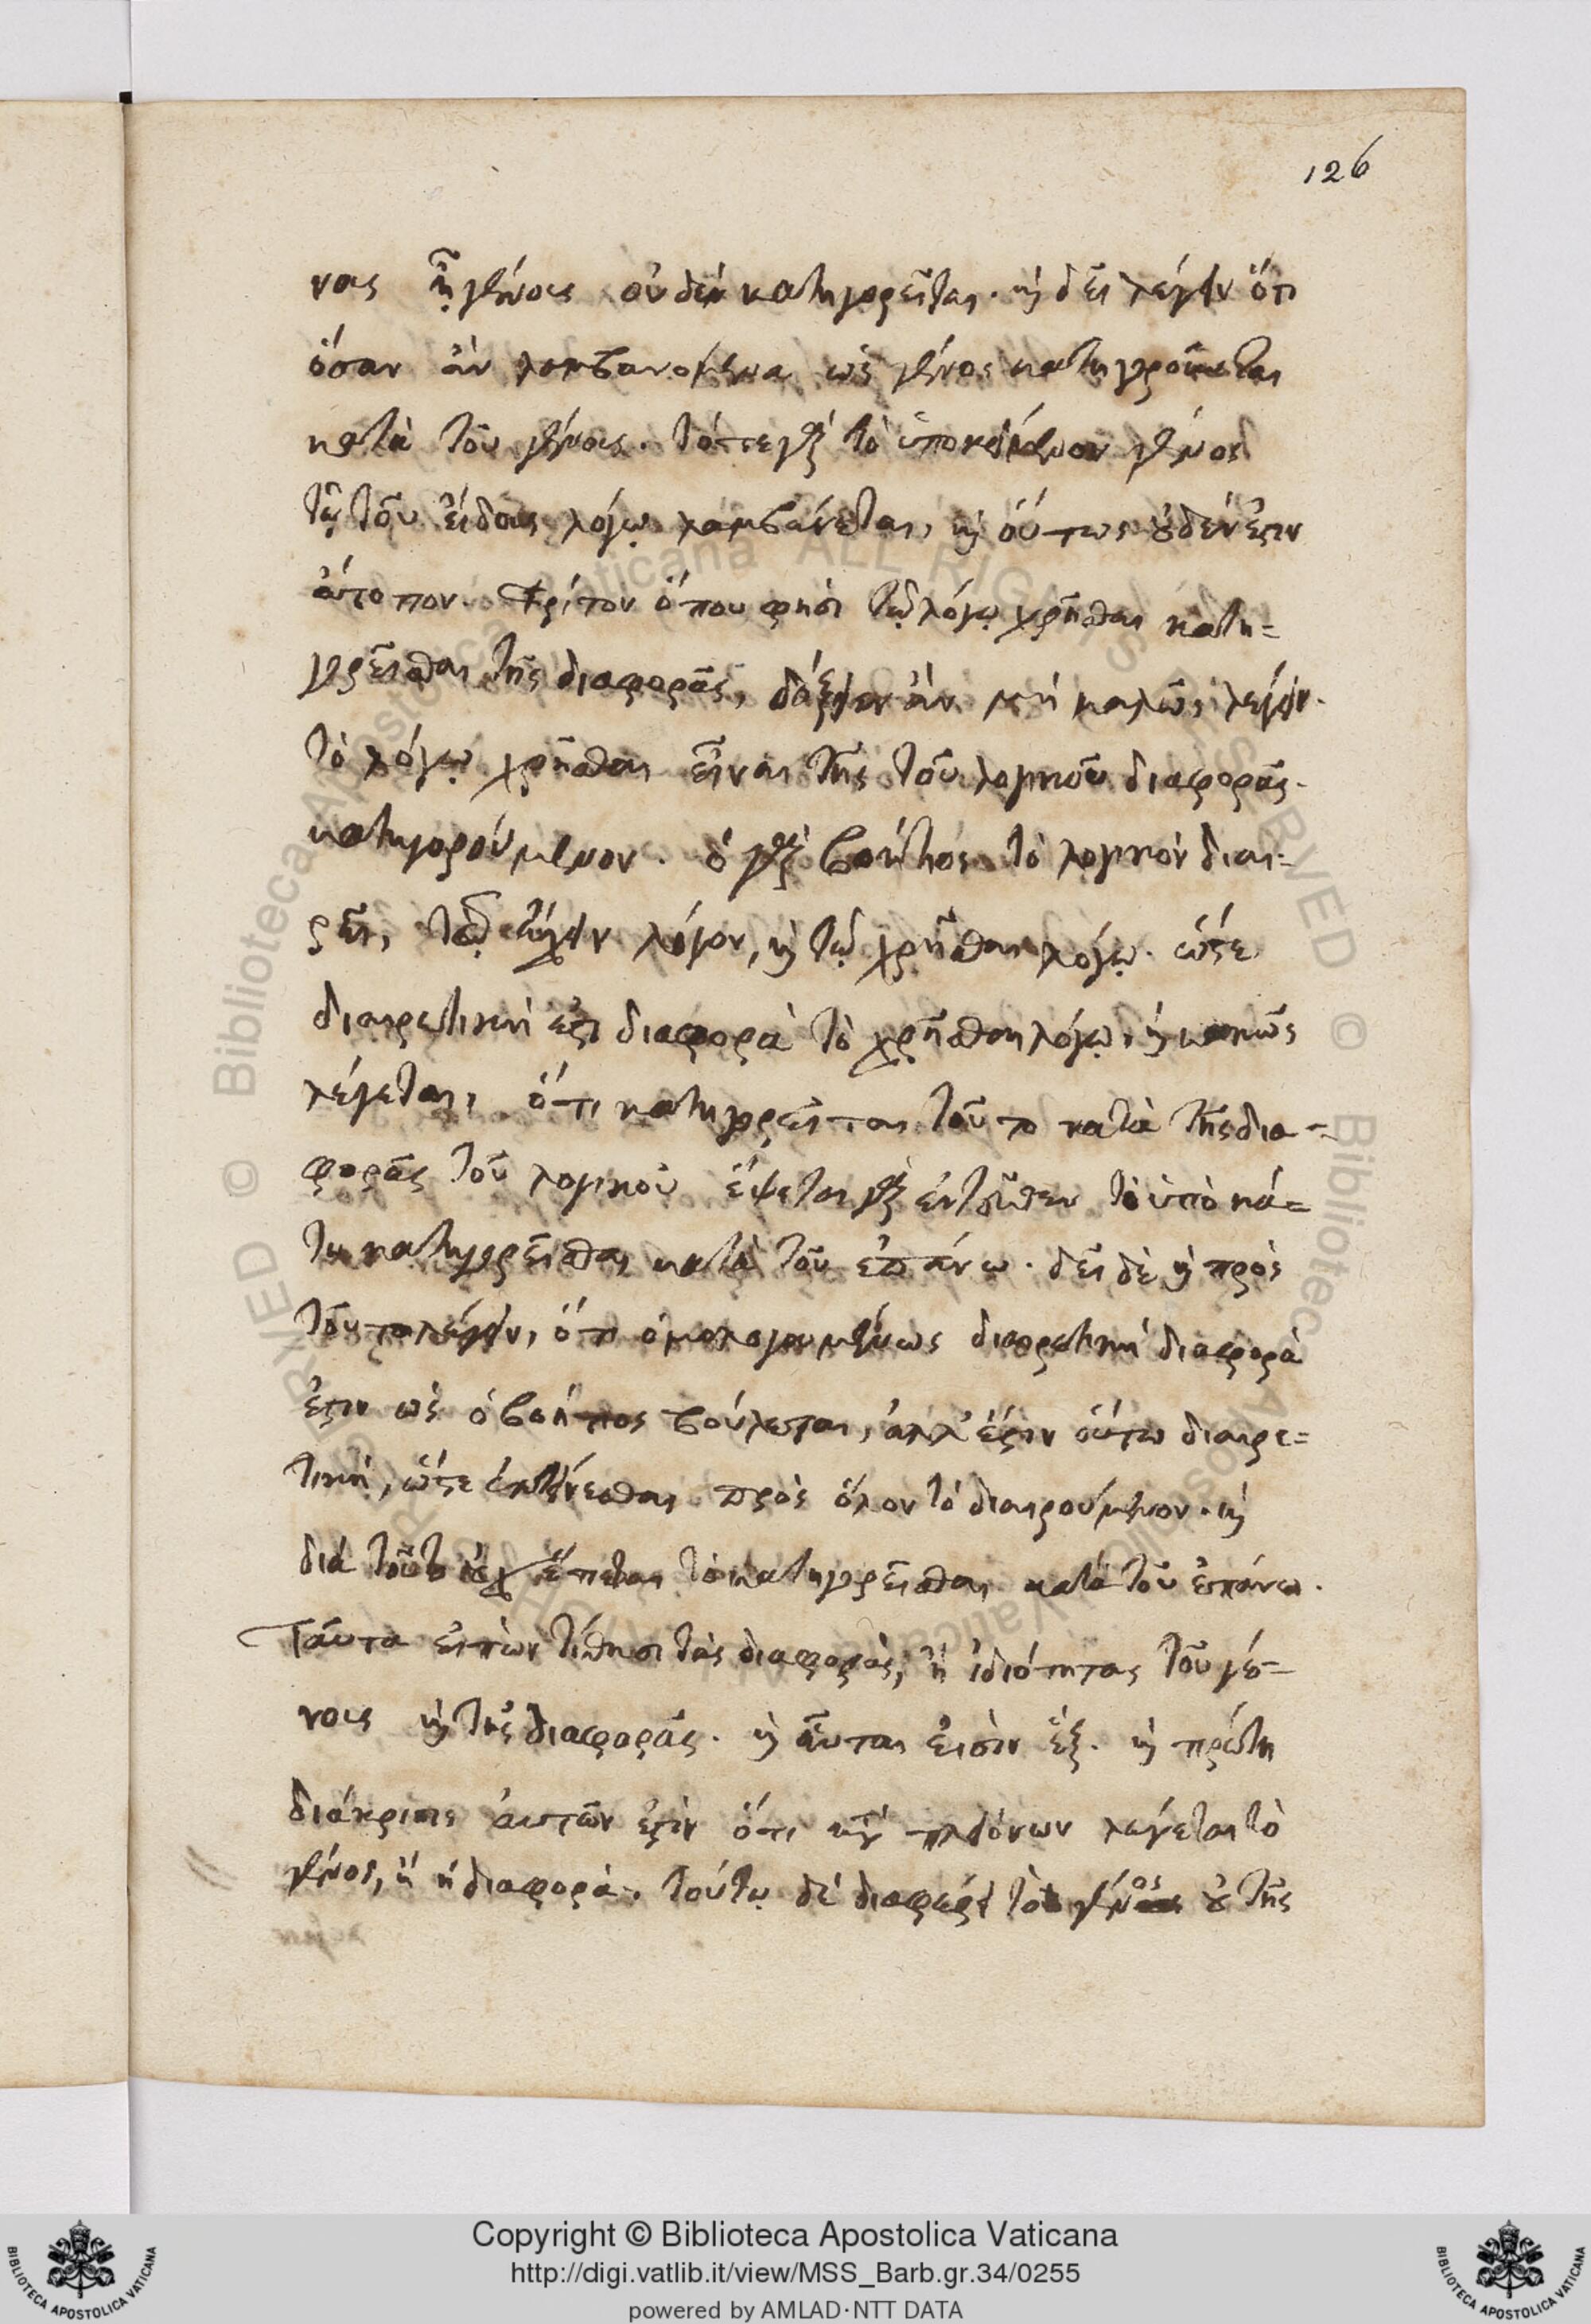 126
νους ᾗ γένους οὐδὲν κατηγορεῖται. καὶ δεῖ λέγειν ὅτι
ὅσαν ἀν λαμβανομενα ὡς γένος κατηγροῦνται
κατὰ τοῦ γένους. τότε γὰρ τὸ ὑποκείμενον γένος
τῷ τοῦ εἴδους λόγῳ λαμβάνεται, καὶ οὕτως οὐδέν ἐστιν
ἄτοπον. Τρίτον ὅπου φησὶ τῷ λόγῳ χρῆσθαι κατη=
γρεῖσθαι τῆς διαφορᾶς, δόξειεν ἀν μὴ καλῶς λέγειν.
τὸ λόγῳ χρῆσθαι εἶναι τῆς τοῦ λογικοῦ διαφορᾶς
κατηγορούμενον. ὁ γὰρ βοήτιος τὸ λογικὸν διαι=
ρεῖ, τῷ ἔχειν λόγον, καὶ τῷ χρῆσθαι λόγῳ. ὥστε
διαιρετικὴ ἐστι διαφορὰ τὸ χρῆσθαι λόγῳ, καὶ κακῶς
λέγεται, ὅτι κατηγρεῖται τοῦτο κατὰ τῆς δια=
φορᾶς τοῦ λογικοῦ ἕψεται γὰρ ἐντεῦθεν τὸ ὑπὸ κά=
τω κατηγρεῖσθαι κατὰ τοῦ ἐπάνω. δεῖ δὲ καὶ πρὸς
τοῦτο λέγειν, ὅτι ὁμολογουμένως διαιρετικὴ διαφορὰ
ἐστιν ὡς ὁ βοήτιος βούλεται, ἀλλ' ἔστιν οὕτω διαιρε=
τικὴ, ὥστε ἐκτείνεσθαι πρὸς ὅλον τὸ διαιρούμενον. καὶ
διὰ τοῦτο οὐχ ἕπεται τὸ κατηγρεῖσθαι κατὰ τοῦ ἐπάνω.
Ταῦτα εἰπὼν τίθησι τὰς διαφορὰς, ἢ ἰδιότητας τοῦ γέ=
νους καὶ τῆς διαφορᾶς. καὶ αὗται εἰσὶν ἕξ. καὶ πρώτη
διάκρισις αὐτῶν ἐστὶν ὅτι κατὰ πλειόνων λέγεται τὸ
γένος, ἢ ἡ διαφορὰ. τούτῳ δὲ διαφέρει τὸ γένος οὐ τῆς
Copyright © Biblioteca Apostolica Vaticana
http://digi.vatlib.it/view/MSS_Barb.gr.34/0255
powered by AMLAD·NTT DATA